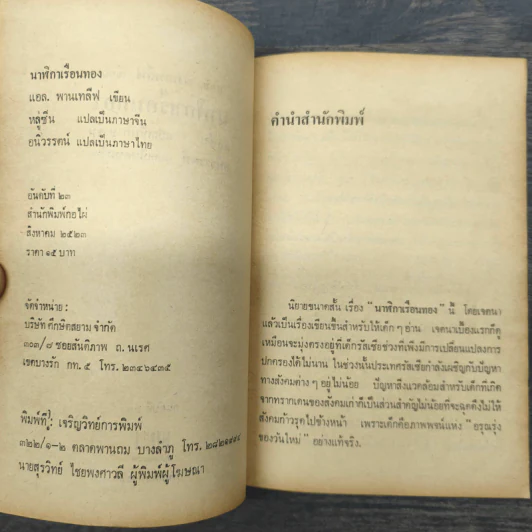 นาฬิกาเรือนทอง
แอล. พานเทลีฟ เขียน
หลู่ซึน แปลเป็นภาษาจีน
อนิวรรตน์ แปลเป็นภาษาไทย
อันดับที่ ๒๓
สำนักพิมพ์กอไผ่
สิงหาคม ๒๕๒๓
ราคา ๑๕ บาท
จัดจำหน่าย :
บริษัท ศึกษิตสยาม จำกัด
๑๑๓/๘ ซอยสันติภาพ ถ. นเรศ
เขตบางรัก กท. ๕ โทร. ๒๓๔๖๔๓๕
พิมพ์ที่ : เจริญวิทย์การพิมพ์
๓๒๒/๑-๒ ตลาดพานถม บางลำภู โทร.
นายสุรวิทย์ ไชยพงศาวลี ผู้พิมพ์ผู้โฆษณา
คำนำสำนักพิมพ์
นิยายขนาดสั้น เรื่อง "นาฬิกาเรือนทอง" นี้ โดยเจตนา
แล้วเป็นเรื่องเขียนขึ้นสำหรับให้เด็ก ๆ อ่าน เจตนาเบื้องแรกก็ดู
เหมือนจะมุ่งตรงอยู่ที่เด็กรัสเซียช่วงที่เพิ่งมีการเปลี่ยนแปลงการ
ปกครองได้ไม่นาน ในช่วงนั้นประเทศรัสเซียกำลังเผชิญกับปัญหา
ทางสังคมต่าง ๆ อยู่ไม่น้อย ปัญหาสิ่งแวดล้อมสำหรับเด็กที่เกิด
จากทรากเดนของสังคมเก่าก็เป็นส่วนสำคัญไม่น้อยที่จะฉุดดึงไม่ให้
สังคมก้าวรุดไปข้างหน้า เพราะเด็กคือภาพพจน์แห่ง "อรุณรุ่ง
ของวันใหม่" อย่างแท้จริง.